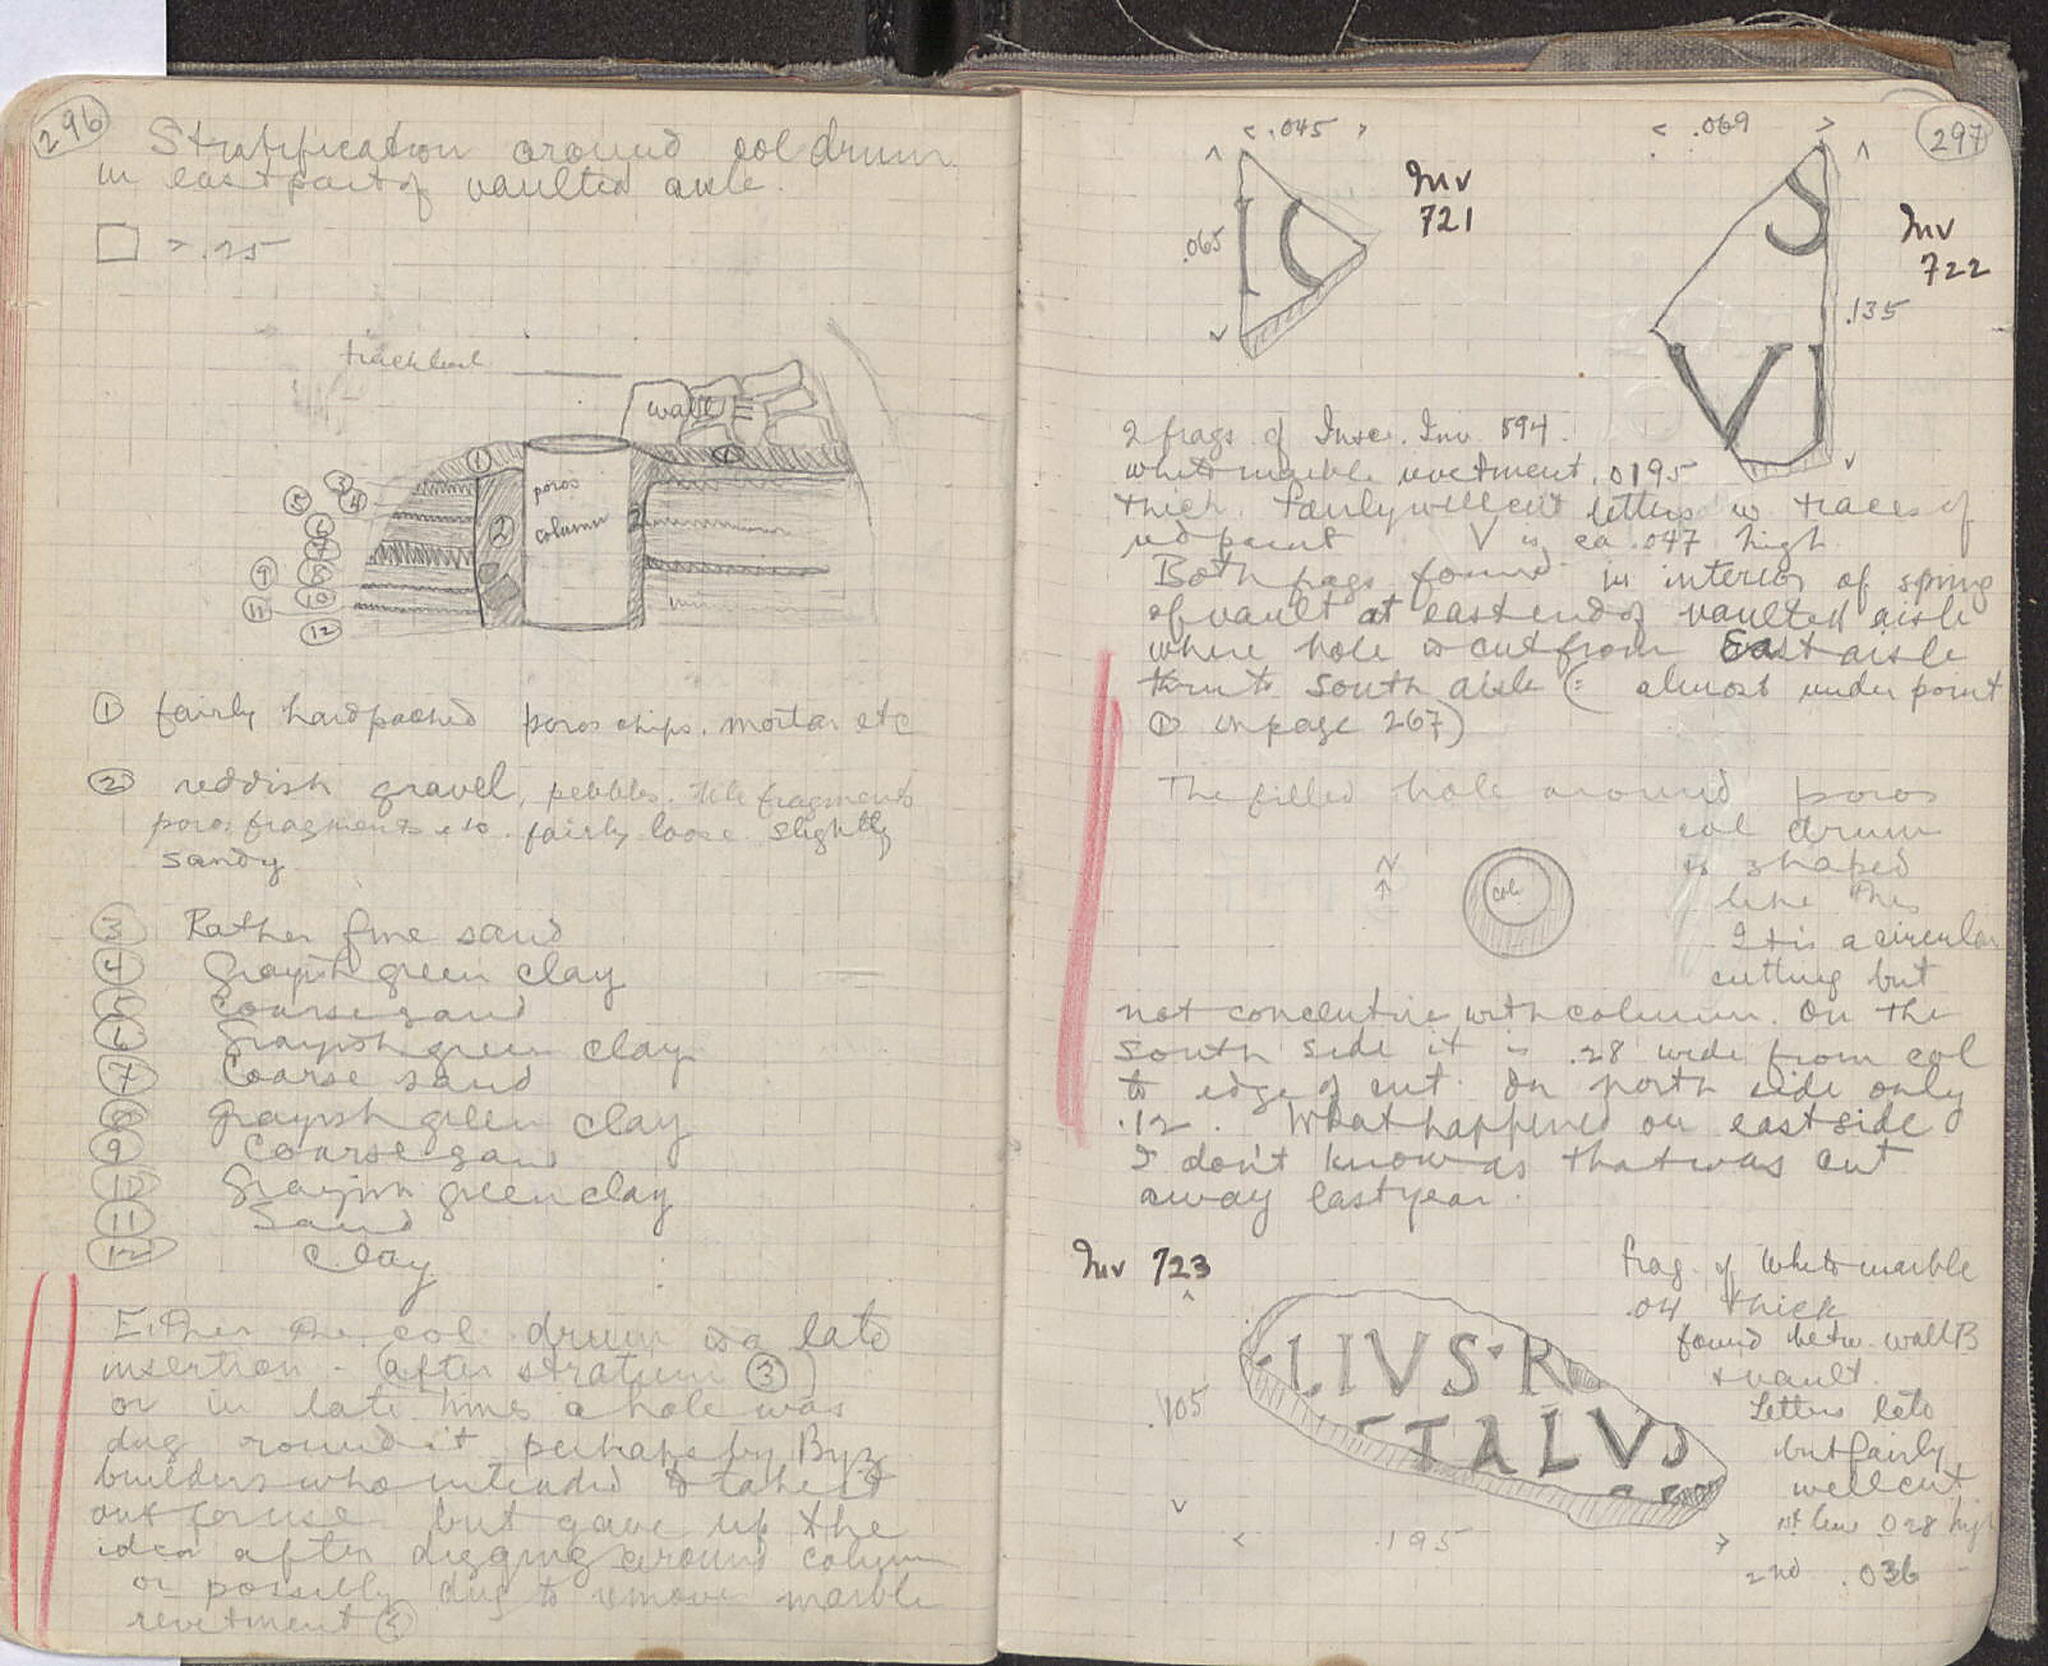 296
Stratification around col drum
in east part of vaulted aisle.
□ = .25
track level
wall E
① ①
poros
column
② 2
③
⑤ ④
⑥
⑦
⑨ ⑧
⑩
⑪
⑫
① fairly hard packed poros chips. mortar etc
② reddish gravel, pebbles. tile fragments
poros fragments etc. fairly loose slightly
sandy
③ Rather fine sand
④ Grayish green clay
⑤ Coarse sand
⑥ Grayish green clay
⑦ Coarse sand
⑧ grayish green clay
⑨ Coarse sand
⑩ Grayish green clay
⑪ Sand
⑫ Clay
Either the col. drum is a late
insertion - (after stratum ③)
or in late times a hole was
dug round it perhaps by Byz
builders who intended to take it
out for use but gave up the
idea after digging around column
or possibly dug to remove marble
revetment
297
.045
.065
IC
Inv
721
.069
S
VI
Inv
722
.135
2 frags of Inscr. Inv 594.
white marble revetment .0195
thick. Fairly well cut letters w traces of
red paint V is ca .047 high
Both frags found in interior of spring
of vault at east end of vaulted aisle
where hole is cut from East aisle
thru to South aisle (= almost under point
① on page 267)
The filled hole around poros
col drum
is shaped
like this
It is a circular
cutting but
N
col
not concentric with column. On the
South side it is .28 wide from col
to edge of cut. On north side only
.12. What happened on east side
I don't know as that was cut
away last year.
Inv 723
frag. of white marble
.04 thick
found betw. wall B
+ vault.
Letters late
but fairly
well cut
1st line .028 high
2nd .036
LIVS·R
TALV
.105
.195